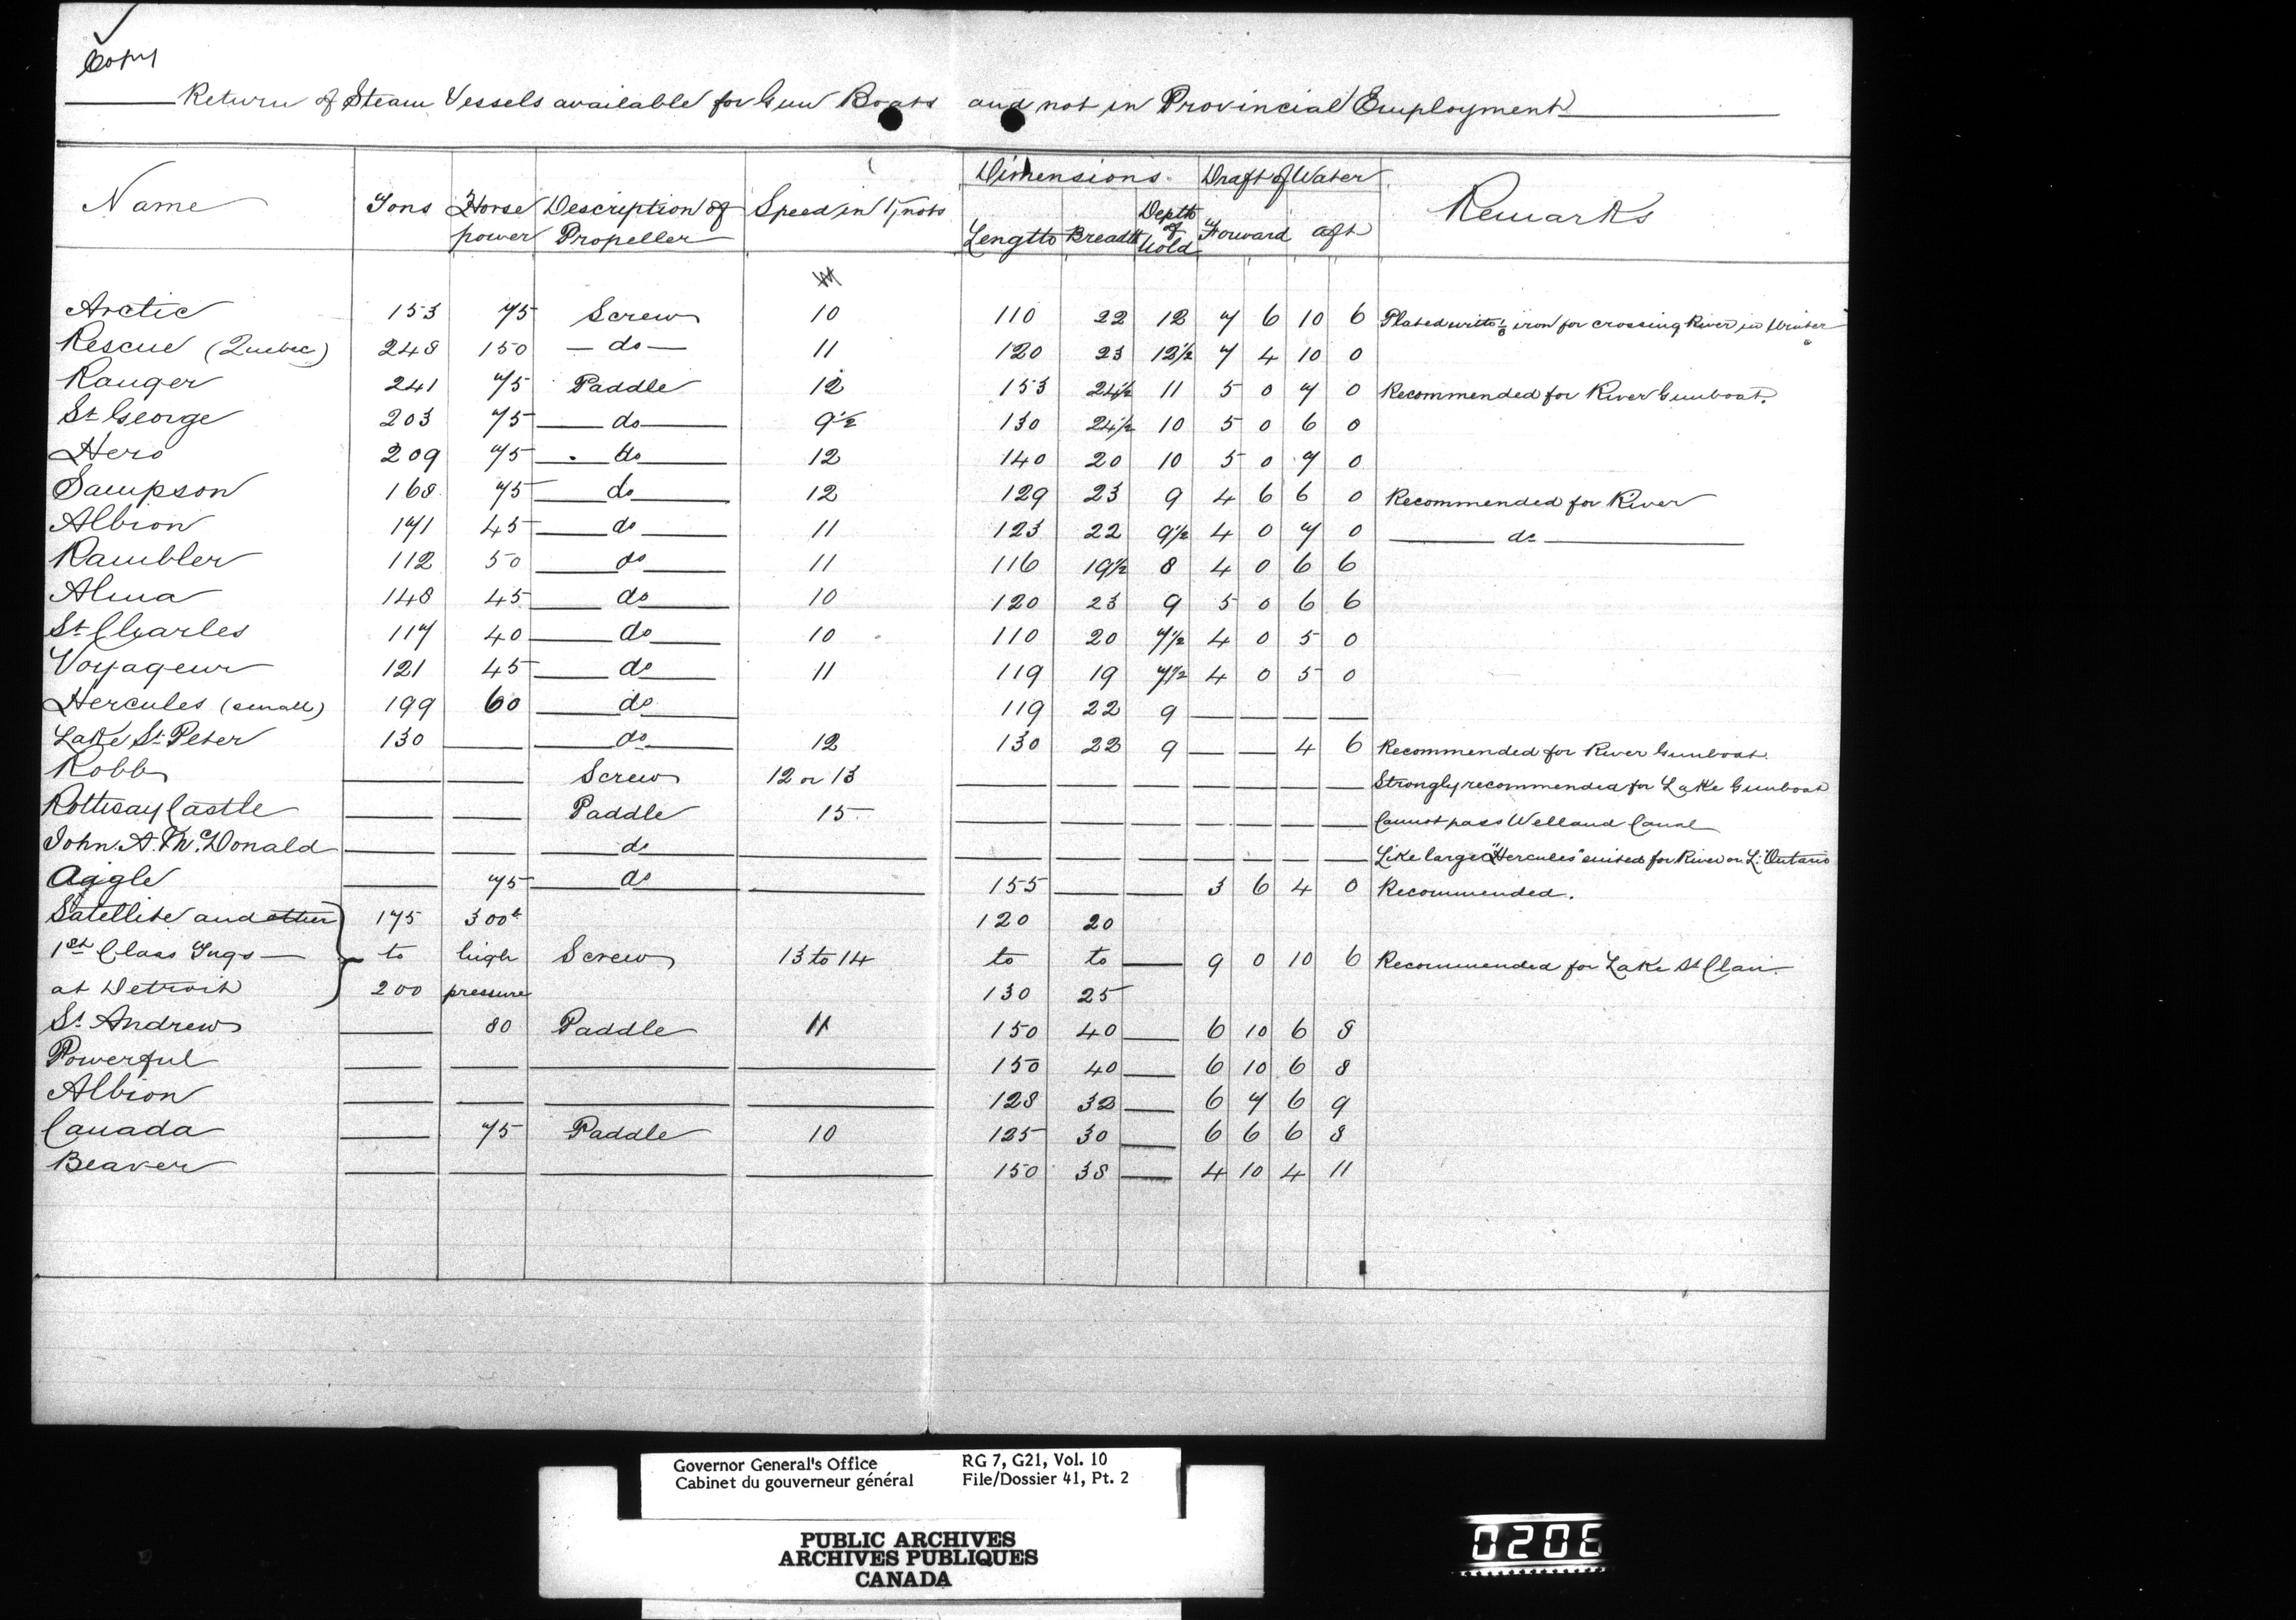 Copy
Return of Steam Vessels available for Gun Boats and not in Provincial Employment
Dimensions. Draft of Water
Name Tons Horse Description of Speed in Knots Depth Remarks
power Propeller Length Breadth of Hold Forward aft
Arctic 153 75 Screw 10 110 22 12 7 6 10 6 Plated with ⅛ iron for crossing River in Winter
Rescue (Quebec) 248 150 — do — 11 120 23 12½ 7 4 10 0
Ranger 241 75 Paddle 12 153 24½ 11 5 0 7 0 Recommended for River Gunboat.
St George 203 75 — do — 9½ 130 24½ 10 5 0 6 0
Hero 209 75 — do — 12 140 20 10 5 0 7 0
Sampson 168 75 — do — 12 129 23 9 4 6 6 0 Recommended for River
Albion 171 45 — do — 11 123 22 9½ 4 0 7 0 — do —
Rambler 112 50 — do — 11 116 19½ 8 4 0 6 6
Alma 148 45 — do — 10 120 23 9 5 0 6 6
St Charles 117 40 — do — 10 110 20 7½ 4 0 5 0
Voyageur 121 45 — do — 11 119 19 7½ 4 0 5 0
Hercules (small) 199 60 — do — 119 22 9 — — — —
Lake St Peter 130 — — do — 12 130 22 9 — — 4 6 Recommended for River Gunboat.
Robb — — Screw 12 or 13 — — — — — — — Strongly recommended for Lake Gunboat
Rothsay Castle — — Paddle 15 — — — — — — — Cannot pass Welland Canal
John. A. McDonald — — — do — — — — — — — — — Like large "Hercules" suited for River or L. Ontario
Aggle — 75 — do — — 155 — — 3 6 4 0 Recommended.
Satellite and other 175 300 120 20
1st Class Tugs — to high Screw 13 to 14 to to — 9 0 10 6 Recommended for Lake St Clair
at Detroit 200 pressure 130 25
St Andrew — 80 Paddle 11 150 40 — 6 10 6 8
Powerful — — — — 150 40 — 6 10 6 8
Albion — — — — 128 32 — 6 7 6 9
Canada — 75 Paddle 10 125 30 — 6 6 6 8
Beaver — — — — 150 38 — 4 10 4 11
Governor General's Office RG 7, G21, Vol. 10
Cabinet du gouverneur général File/Dossier 41, Pt. 2
PUBLIC ARCHIVES
ARCHIVES PUBLIQUES
CANADA
0206